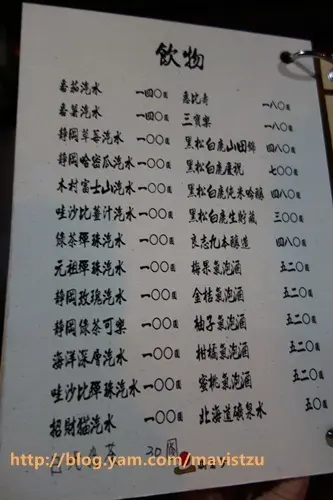 飲物
番茄汽水 一四〇圓
番薯汽水 一四〇圓
靜岡草莓汽水 一〇〇圓
靜岡哈密瓜汽水 一〇〇圓
木村富士山汽水 一〇〇圓
哇沙比薑汁汽水 一〇〇圓
綠茶彈珠汽水 一〇〇圓
元祖彈珠汽水 一〇〇圓
靜岡玫瑰汽水 一〇〇圓
靜岡綠茶可樂 一〇〇圓
海洋深層汽水 一〇〇圓
哇沙比彈珠汽水 一〇〇圓
招財貓汽水 一〇〇圓
30圓
惠比壽 一八〇圓
三寶樂 一八〇圓
黑松白鹿山田錦 四八〇圓
黑松白鹿慶祝 七〇〇圓
黑松白鹿純米吟釀 四八〇圓
黑松白鹿生貯藏 三〇〇圓
良志九本釀造 四八〇圓
梅果氣泡酒 五二〇圓
金桔氣泡酒 五二〇圓
柚子氣泡酒 五二〇圓
柑橘氣泡酒 五二〇圓
蜜桃氣泡酒 五二〇圓
北海道礦泉水 五〇圓
http://blog.yam.com/mavistzu